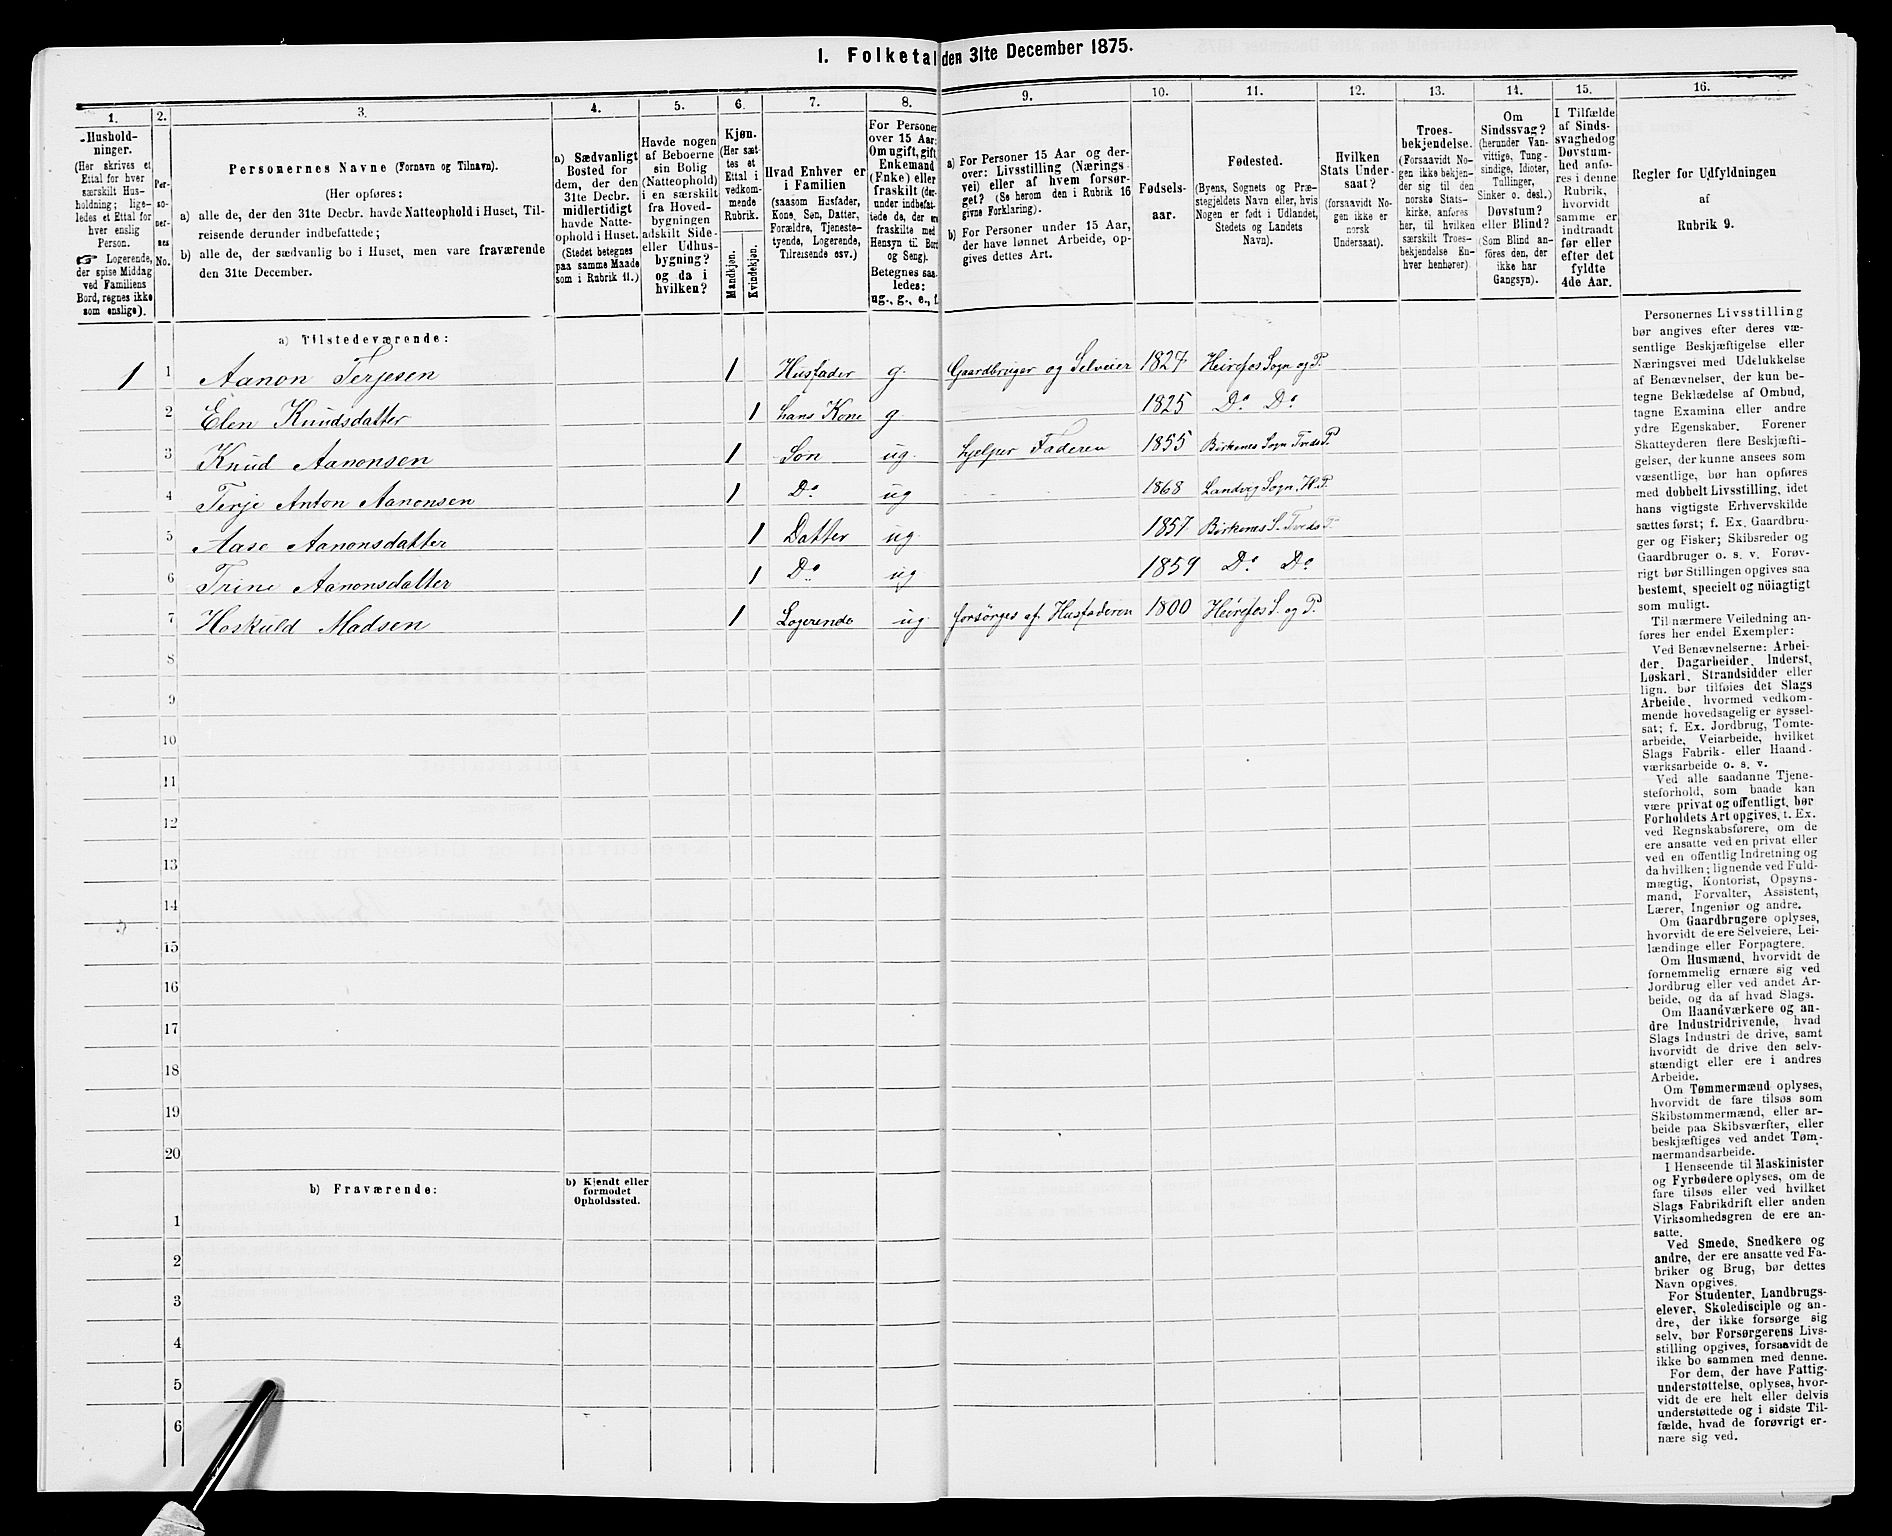 I. Folketal den 31te December 1875.
1.
2.
3.
4.
5.
6.
7.
8.
9.
10.
11.
12.
13.
14.
15.
16.
Hushold-
ninger.
(Her skrives et
Ettal for hver
særskilt Hus-
holdning; lige-
ledes et Ettal for
hver enslig
Person.
☞ Logerende,
der spise Middag
ved Familiens
Bord, regnes ikke
som enslige).
Per-
so-
ner-
nes
No.
Personernes Navne (Fornavn og Tilnavn).
(Her opføres:
a) alle de, der den 31te Decbr. havde Natteophold i Huset, Til-
reisende derunder indbefattede;
b) alle de, der sædvanlig bo i Huset, men vare fraværende
den 31te December.
a) Sædvanligt
Bosted for
dem, der den
31te Decbr.
midlertidigt
havde Natte-
ophold i Huset.
(Stedet betegnes
paa samme Maade
som i Rubrik 11.)
Havde nogen
af Beboerne
sin Bolig
(Natteophold)
i en særskilt
fra Hoved-
bygningen
adskilt Side-
eller Udhus-
bygning?
og da i
hvilken?
Kjøn.
(Her sæt-
tes et
Ettal i
vedkom-
mende
Rubrik.
Mandkjøn.
Kvindekjøn.
Hvad Enhver er
i Familien
(saasom Husfader,
Kone, Søn, Datter,
Forældre, Tjeneste-
tyende, Logerende,
Tilreisende osv.)
For Personer
over 15 Aar:
Om ugift, gift,
Enkemand
(Enke) eller
fraskilt (der-
under indbefat-
tede de, der ere
fraskilte med
Hensyn til Bord
og Seng).
Betegnes saa-
ledes:
ug., g., e., f.
a) For Personer 15 Aar og der-
over: Livsstilling (Nærings-
vei) eller af hvem forsør-
get? (Se herom den i Rubrik 16
givne Forklaring).
b) For Personer under 15 Aar,
der have lønnet Arbeide, op-
gives dettes Art.
Fødsels-
aar.
Fødested.
(Byens, Sognets og Præ-
stegjeldets Navn eller, hvis
Nogen er født i Udlandet,
Stedets og Landets
Navn).
Hvilken
Stats Under-
saat?
(forsaavidt No-
gen ikke er
norsk
Undersaat).
Troes-
bekjendelse.
(Forsaavidt No-
gen ikke bekjen-
der sig til den
norske Stats-
kirke, anføres
her, til hvilken
særskilt Troes-
bekjendelse En-
hver henhører).
Om
Sindssvag?
(herunder Van-
vittige, Tung-
sindige, Idioter,
Tullinger,
Sinker o. desl.).
Døvstum?
eller Blind?
(Som Blind an-
føres den, der
ikke har
Gangsyn).
I Tilfælde
af Sinds-
svaghed og
Døvstum-
hed anfø-
res i denne
Rubrik,
hvorvidt
samme er
indtraadt
før eller
efter det
fyldte
4de Aar.
Regler for Udfyldningen
af
Rubrik 9.
a) Tilstedeværende:
1 1 Aanon Terjesen 1 Husfader g. Gaardbruger og Selveier 1827 Heirefos Sogn og P.
2 Elen Knudsdatter 1 hans Kone g 1825 Do Do
3 Knud Aanonsen 1 Søn ug. hjelper Faderen 1855 Birkenes Sogn Tveds P.
4 Terje Anton Aanonsen 1 Do ug 1868 Landvig Sogn. H.P.
5 Aase Aanonsdatter 1 Datter ug. 1857 Birkenes S. Tveds P
6 Trine Aanonsdatter 1 Do ug 1859 Do Do
7 Hoskuld Madsen 1 Logerende ug. forsørges af Husfaderen 1800 Heirefos S. og P.
8
9
10
11
12
13
14
15
16
17
18
19
20
b) Fraværende:
b) Kjendt eller
formodet
Opholdssted.
1
2
3
4
5
6
Personernes Livsstilling
bør angives efter deres væ-
sentlige Beskjæftigelse eller
Næringsvei med Udelukkelse
af Benævnelser, der kun be-
tegne Beklædelse af Ombud,
tagne Examina eller andre
ydre Egenskaber. Forener
Skatteyderen flere Beskjæfti-
gelser, der kunne ansees som
væsentlige, bør han opføres
med dobbelt Livsstilling, idet
hans vigtigste Erhvervskilde
sættes først; f. Ex. Gaardbru-
ger og Fisker; Skibsreder og
Gaardbruger o. s. v. Forøv-
rigt bør Stillingen opgives saa
bestemt, specielt og nöiagtigt
som muligt.
Til nærmere Veiledning an-
føres her endel Exempler:
Ved Benævnelserne: Arbei-
der, Dagarbeider, Inderst,
Løskarl, Strandsidder eller
lign. bør tilføies det Slags
Arbeide, hvormed vedkom-
mende hovedsagelig er syssel-
sat; f. Ex. Jordbrug, Tomte-
arbeide, Veiarbeide, hvilket
Slags Fabrik- eller Haand-
værksarbeide o. s. v.
Ved alle saadanne Tjene-
steforhold, som baade kan
være privat og offentligt, bør
Forholdets Art opgives, t. Ex.
ved Regnskabsførere, om de
ere ansatte ved en privat eller
ved en offentlig Indretning og
da hvilken; lignende ved Fuld-
mægtig, Kontorist, Opsyns-
mand, Forvalter, Assistent,
Lærer, Ingeniør og andre.
Om Gaardbrugere oplyses,
hvorvidt de ere Selveiere, Lei-
lændinge eller Forpagtere.
Om Husmænd, hvorvidt de
fornemmelig ernære sig ved
Jordbrug eller ved andet Ar-
beide, og da af hvad Slags.
Om Haandværkere og an-
dre Industridrivende, hvad
Slags Industri de drive, samt
hvorvidt de drive den selv-
stændigt eller ere i andres
Arbeide.
Om Tømmermænd oplyses,
hvorvidt de fare tilsøs som
Skibstømmermænd, eller ar-
beide paa Skibsværfter, eller
beskjæftiges ved andet Tøm-
mermandsarbeide.
I Henseende til Maskinister
og Fyrbødere oplyses, om de
fare tilsøs eller ved hvilket
Slags Fabrikdrift eller anden
Virksomhedsgren de ere an-
satte.
Ved Smede, Snedkere og
andre, der ere ansatte ved Fa-
briker og Brug, bør dettes
Navn opgives.
For Studenter, Landbrugs-
elever, Skoledisciple og an-
dre, der ikke forsørge sig
selv, bør Forsørgerens Livs-
stilling opgives, forsaavidt de
ikke bo sammen med denne.
For dem, der have Fattig-
understøttelse, oplyses, hvor-
vidt de ere helt eller delvis
understøttede og i sidste Til-
fælde, hvad de forøvrigt er-
nære sig ved.